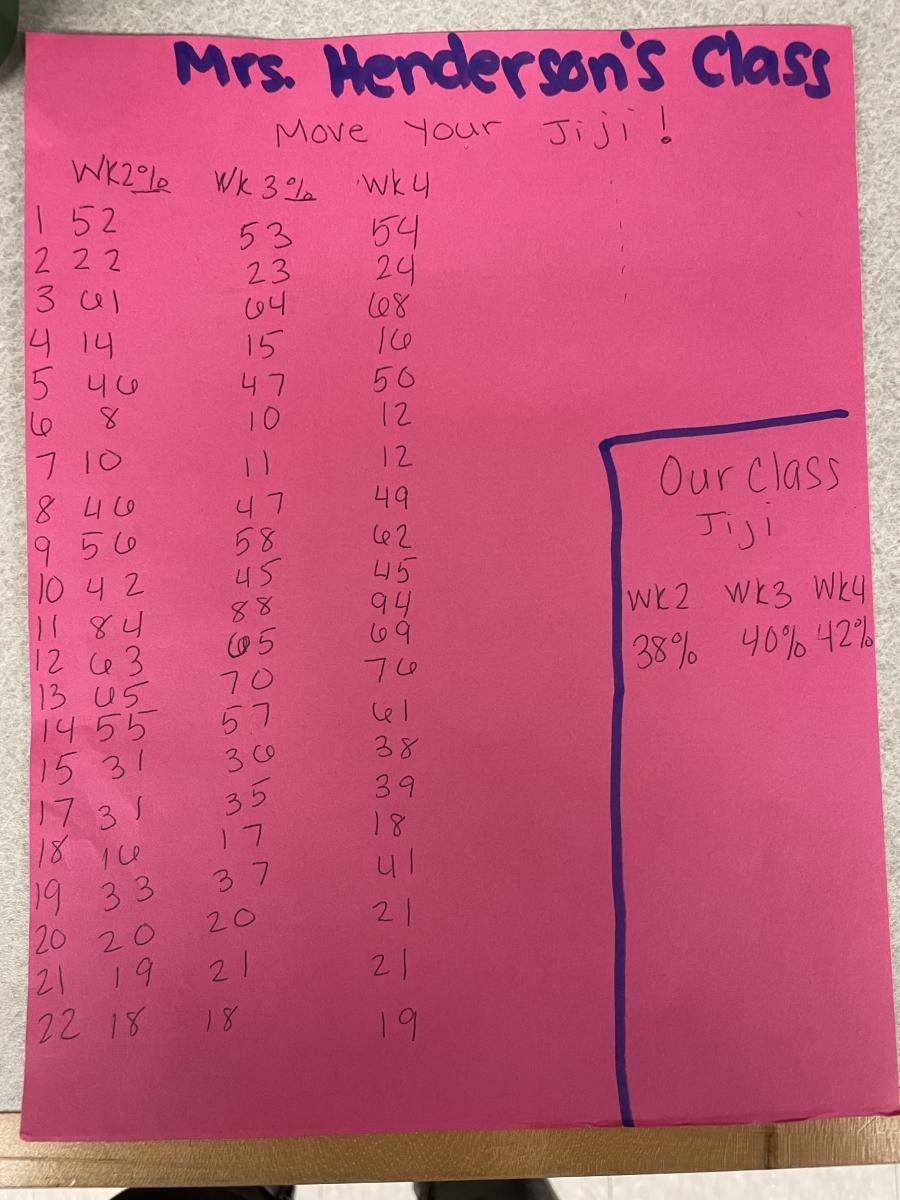 Mrs. Henderson's Class
Move Your Jiji!
Wk2% Wk 3% Wk 4
1 52 53 54
2 22 23 24
3 61 64 68
4 14 15 16
5 46 47 50
6 8 10 12
7 10 11 12
8 46 47 49
9 56 58 62
10 42 45 45
11 84 88 94
12 63 65 69
13 65 70 76
14 55 57 61
15 31 36 38
17 31 35 39
18 16 17 18
19 33 37 41
20 20 20 21
21 19 21 21
22 18 18 19
Our Class
Jiji
Wk2 Wk3 Wk4
38% 40% 42%